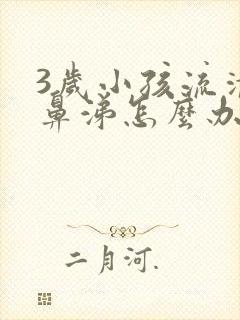 3歲小孩流清
鼻涕怎麼办
二月河.